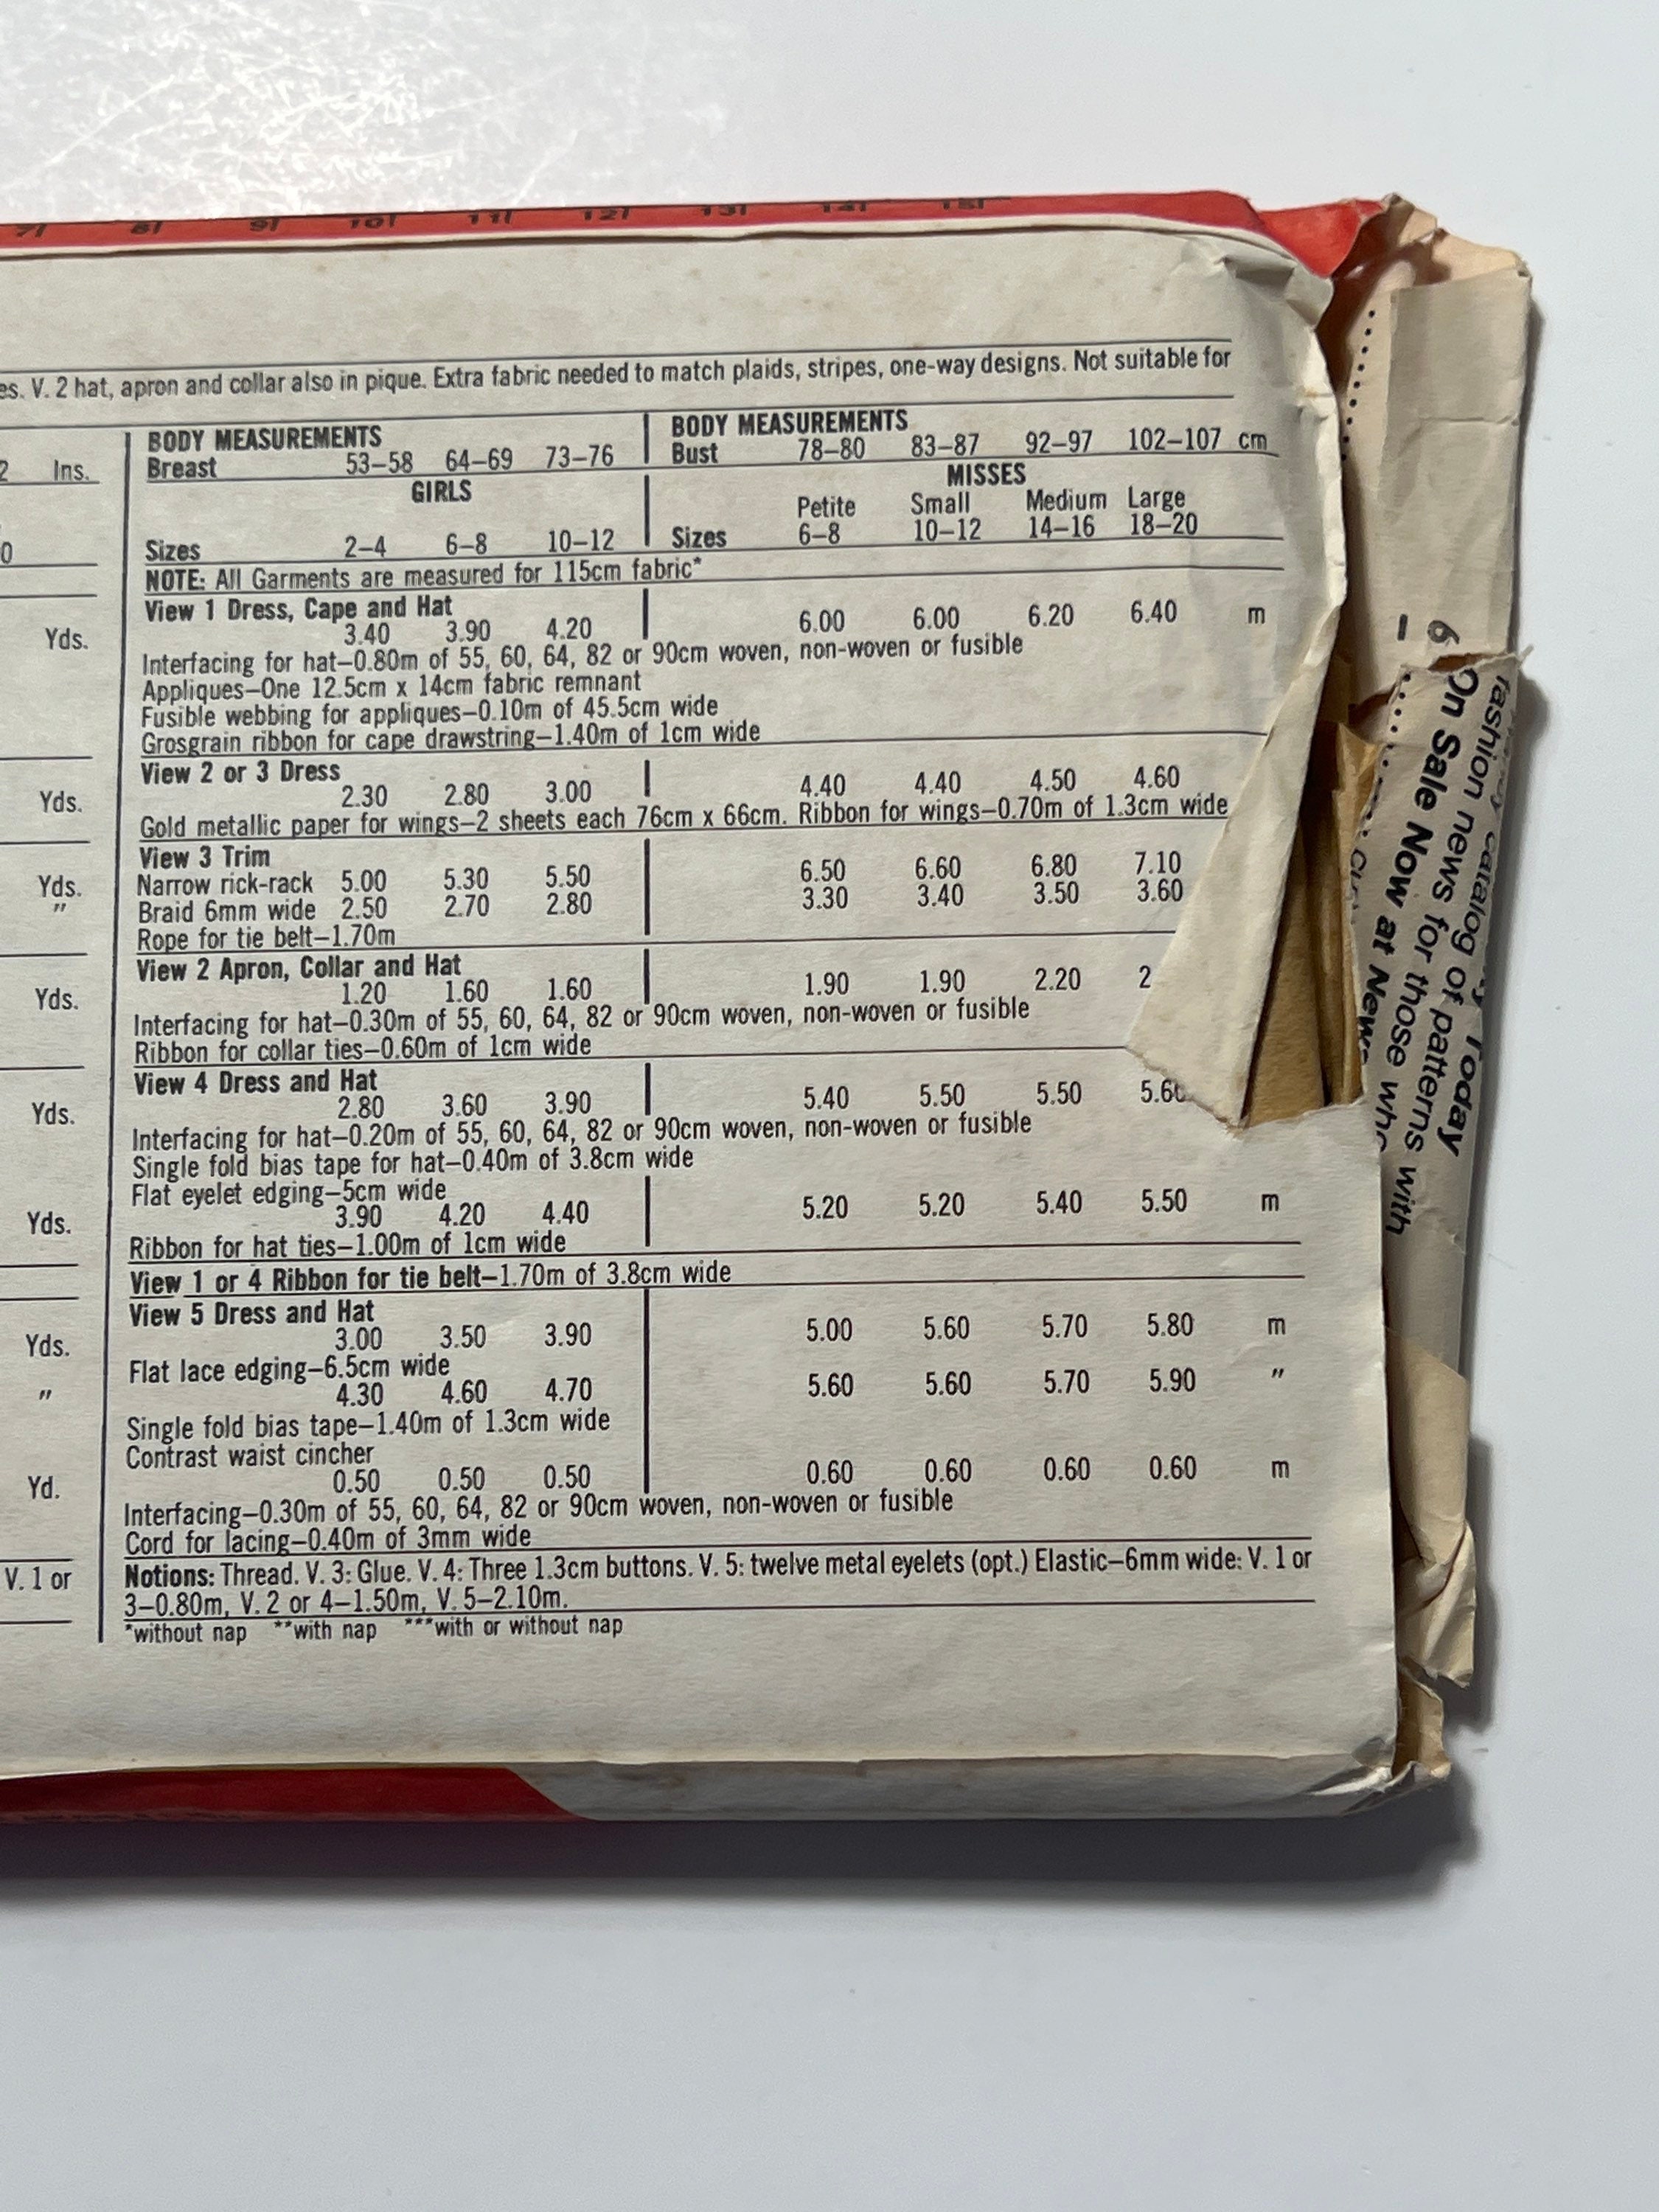 7/ 8/ 9/ 10/ 11/ 12/ 13/ 14/ 15/
es. V. 2 hat, apron and collar also in pique. Extra fabric needed to match plaids, stripes, one-way designs. Not suitable for
BODY MEASUREMENTS BODY MEASUREMENTS
2 Ins. Breast 53–58 64–69 73–76 Bust 78–80 83–87 92–97 102–107 cm
GIRLS MISSES
Petite Small Medium Large
0 Sizes 2–4 6–8 10–12 Sizes 6–8 10–12 14–16 18–20
NOTE: All Garments are measured for 115cm fabric*
View 1 Dress, Cape and Hat
Yds. 3.40 3.90 4.20 6.00 6.00 6.20 6.40 m
Interfacing for hat–0.80m of 55, 60, 64, 82 or 90cm woven, non-woven or fusible
Appliques–One 12.5cm x 14cm fabric remnant
Fusible webbing for appliques–0.10m of 45.5cm wide
Grosgrain ribbon for cape drawstring–1.40m of 1cm wide
View 2 or 3 Dress
Yds. 2.30 2.80 3.00 4.40 4.40 4.50 4.60
Gold metallic paper for wings–2 sheets each 76cm x 66cm. Ribbon for wings–0.70m of 1.3cm wide
View 3 Trim
Yds. Narrow rick-rack 5.00 5.30 5.50 6.50 6.60 6.80 7.10
" Braid 6mm wide 2.50 2.70 2.80 3.30 3.40 3.50 3.60
Rope for tie belt–1.70m
View 2 Apron, Collar and Hat
Yds. 1.20 1.60 1.60 1.90 1.90 2.20 2
Interfacing for hat–0.30m of 55, 60, 64, 82 or 90cm woven, non-woven or fusible
Ribbon for collar ties–0.60m of 1cm wide
View 4 Dress and Hat
Yds. 2.80 3.60 3.90 5.40 5.50 5.50 5.60
Interfacing for hat–0.20m of 55, 60, 64, 82 or 90cm woven, non-woven or fusible
Single fold bias tape for hat–0.40m of 3.8cm wide
Flat eyelet edging–5cm wide
Yds. 3.90 4.20 4.40 5.20 5.20 5.40 5.50 m
Ribbon for hat ties–1.00m of 1cm wide
View 1 or 4 Ribbon for tie belt–1.70m of 3.8cm wide
View 5 Dress and Hat
Yds. 3.00 3.50 3.90 5.00 5.60 5.70 5.80 m
Flat lace edging–6.5cm wide
" 4.30 4.60 4.70 5.60 5.60 5.70 5.90 "
Single fold bias tape–1.40m of 1.3cm wide
Contrast waist cincher
Yd. 0.50 0.50 0.50 0.60 0.60 0.60 0.60 m
Interfacing–0.30m of 55, 60, 64, 82 or 90cm woven, non-woven or fusible
Cord for lacing–0.40m of 3mm wide
V. 1 or Notions: Thread. V. 3: Glue. V. 4: Three 1.3cm buttons. V. 5: twelve metal eyelets (opt.) Elastic–6mm wide: V. 1 or
3–0.80m, V. 2 or 4–1.50m, V. 5–2.10m.
*without nap **with nap ***with or without nap
6
Today
catalog of patterns with
fashion news for those who
On Sale Now at News